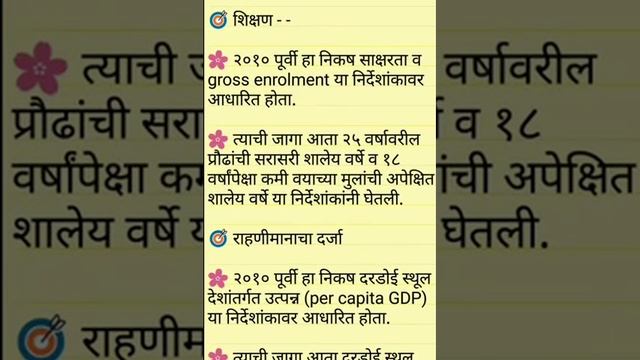 🎯 शिक्षण - -
🌸 २०१० पूर्वी हा निकष साक्षरता व
gross enrolment या निर्देशांकावर
आधारित होता.
🌸 त्याची जागा आता २५ वर्षावरील
प्रौढांची सरासरी शालेय वर्षे व १८
वर्षांपेक्षा कमी वयाच्या मुलांची अपेक्षित
शालेय वर्षे या निर्देशांकांनी घेतली.
🎯 राहणीमानाचा दर्जा
🌸 २०१० पूर्वी हा निकष दरडोई स्थूल
देशांतर्गत उत्पन्न (per capita GDP)
या निर्देशांकावर आधारित होता.
🌸 त्याची जागा आता दरडोई स्थूल